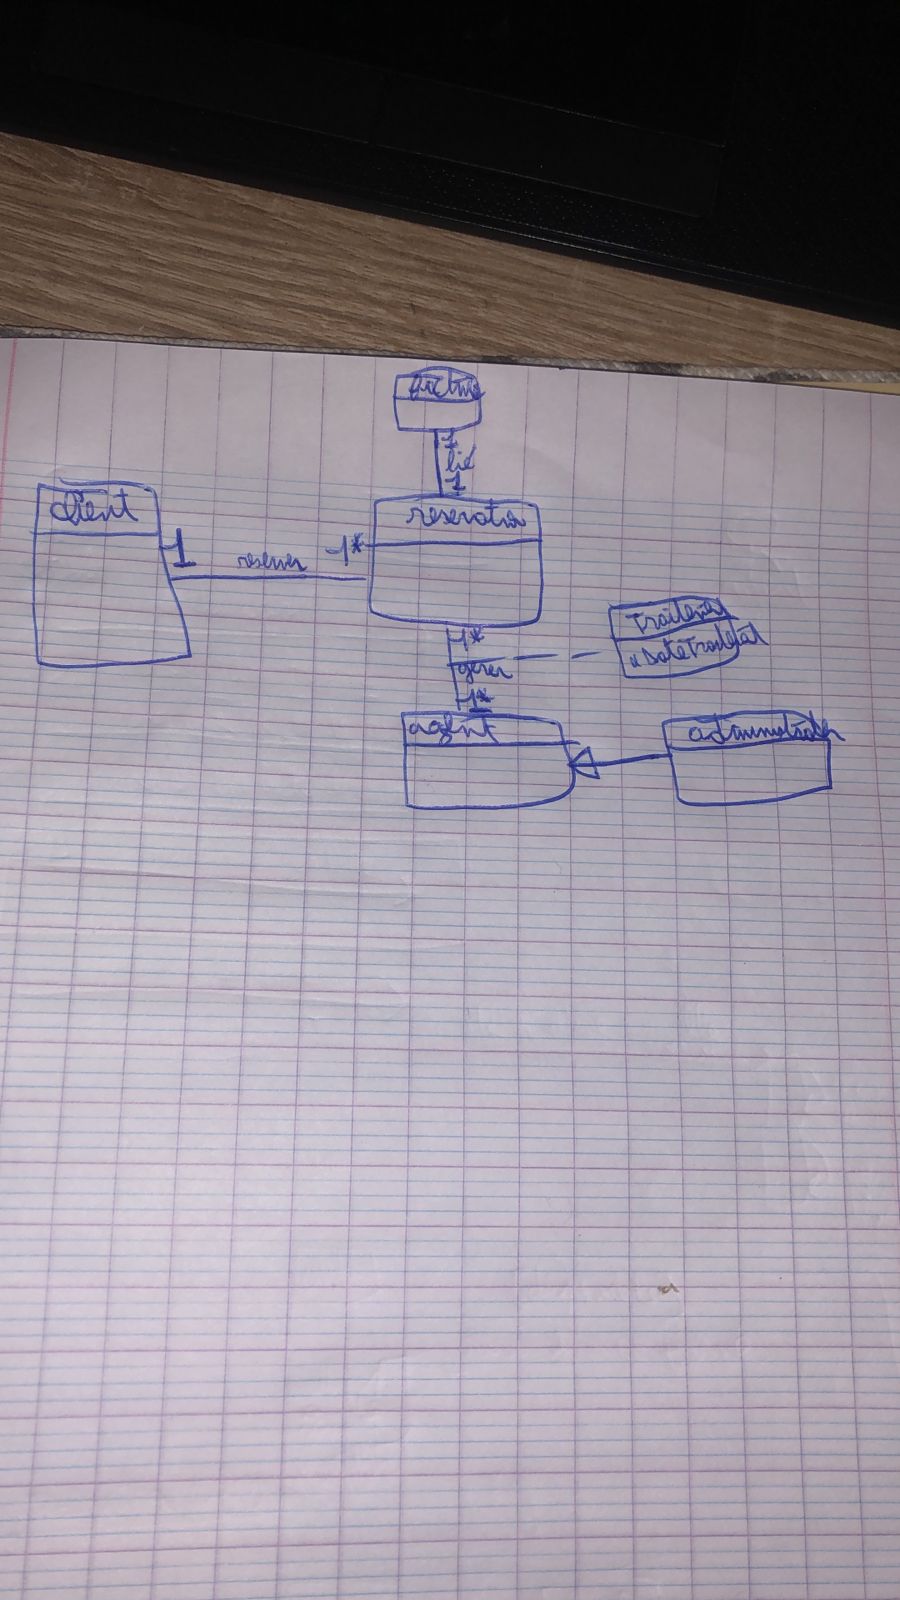 facture
1
lié
1
client
reservation
1
reserver
1*
1*
gerer
1*
Traitement
agent
administrateur